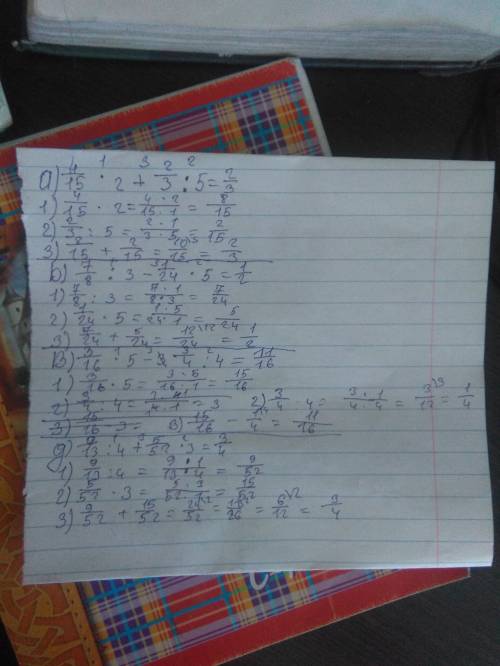 а) 4/15 · 2 + 2/3 : 5 = 2/3
1) 4/15 · 2 = 4·2/15·1 = 8/15
2) 2/3 : 5 = 2·1/3·5 = 2/15
3) 8/15 + 2/15 = 10/15 = 2/3
Б) 7/8 : 3 - 1/24 · 5 = 1/2
1) 7/8 : 3 = 7·1/8·3 = 7/24
2) 1/24 · 5 = 1·5/24·1 = 5/24
3) 7/24 + 5/24 = 12/24 = 1/2
В) 3/16 · 5 - 3/4 : 4 = 11/16
1) 3/16 · 5 = 3·5/16·1 = 15/16
2) 3/4 · 4 = 3 2) 3/4 : 4 = 3·1/4·4 = 3/12 = 1/4
3) 15/16 - 3 = 3) 15/16 - 1/4 = 11/16
д) 9/13 : 4 + 5/52 · 3 = 3/4
1) 9/13 : 4 = 9·1/13·4 = 9/52
2) 5/52 · 3 = 5·3/52·1 = 15/52
3) 9/52 + 15/52 = 24/52 = = 6/12 = 3/4